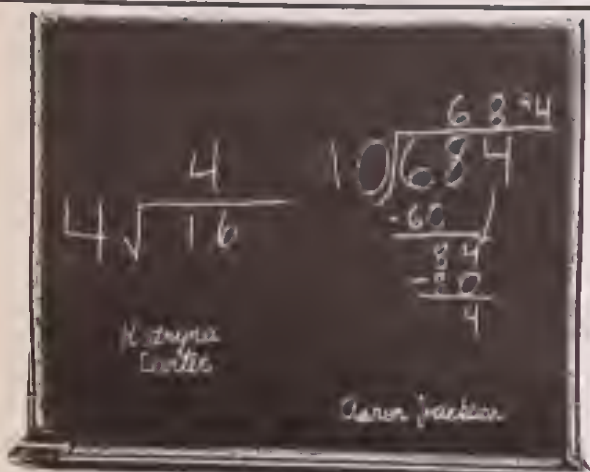 4
4 √ 16
Katryna
Carter
68 r4
10)684
-60
84
-80
4
Aaron Jackson